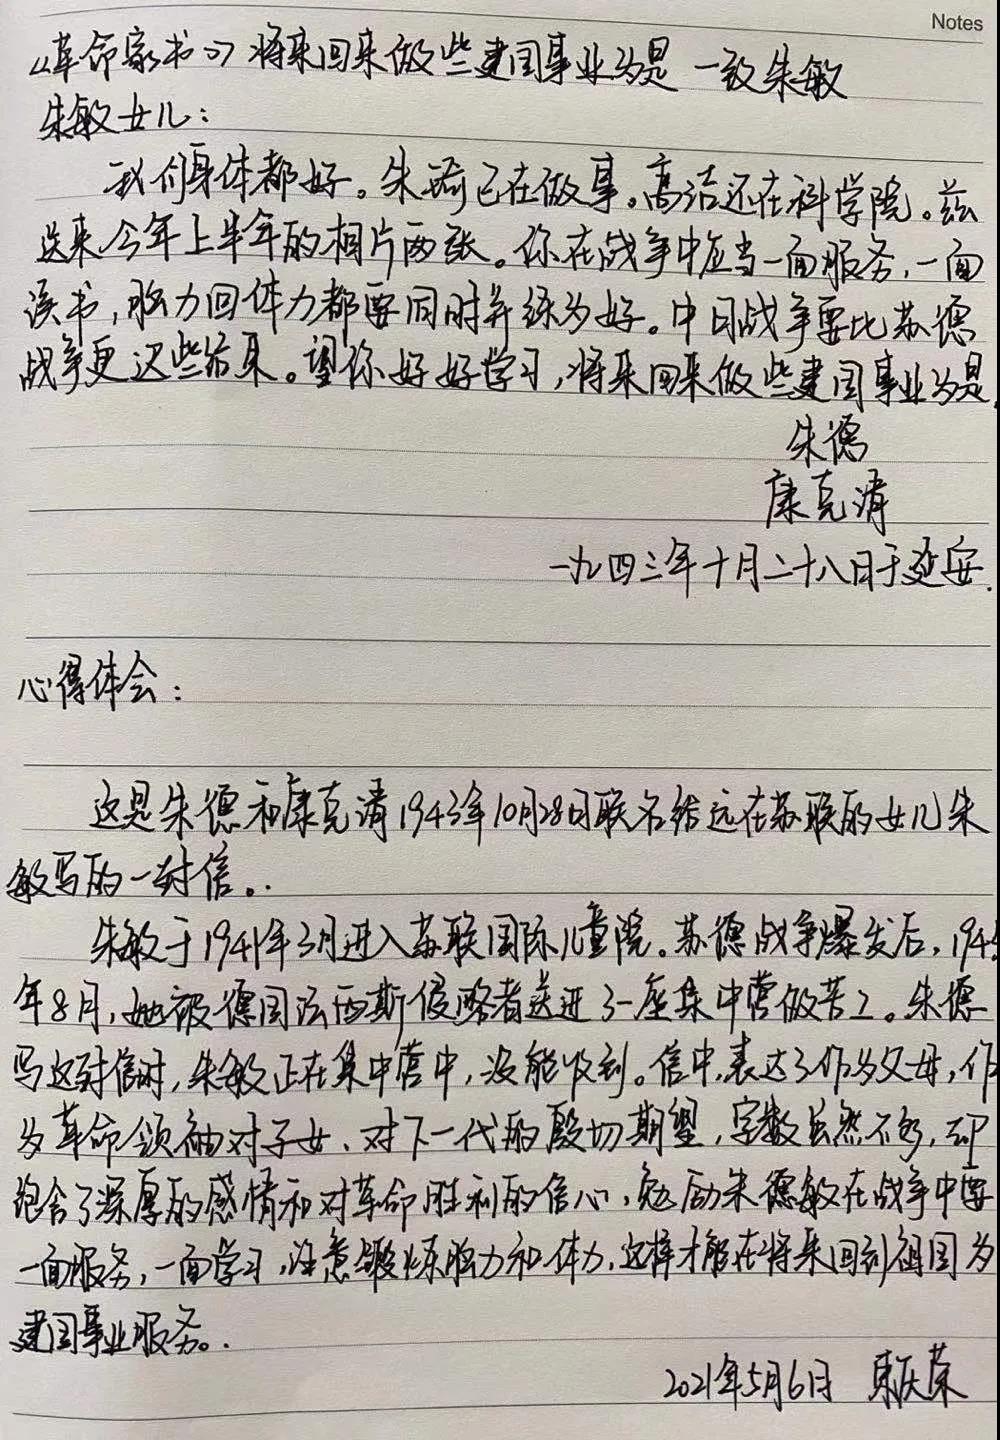 Notes
《革命家书》将来回来做些建国事业为是 一致朱敏
朱敏女儿：
我们身体都好。朱琦已在做事。高洁还在科学院。兹
送来今年上半年的相片两张。你在战争中应当一面服务，一面
读书，脑力同体力都要同时并练为好。中日战争要比苏德
战争更迟些结果。望你好好学习，将来回来做些建国事业为是。
朱德
康克清
一九四三年十月二十八日于延安.
心得体会：
这是朱德和康克清1943年10月28日联名给远在苏联的女儿朱
敏写的一封信。
朱敏于1941年3月进入苏联国际儿童院。苏德战争爆发后，194
年8月，她被德国法西斯侵略者送进了一座集中营做苦工。朱德
写这封信时，朱敏正在集中营中，没能收到。信中，表达了作为父母，作
为革命领袖对子女、对下一代的殷切期望，字数虽然不多，却
饱含了深厚的感情和对革命胜利的信心，勉励朱德敏在战争中要
一面服务，一面学习，注意锻炼脑力和体力，这样才能在将来回到祖国为
建国事业服务。
2021年5月6日